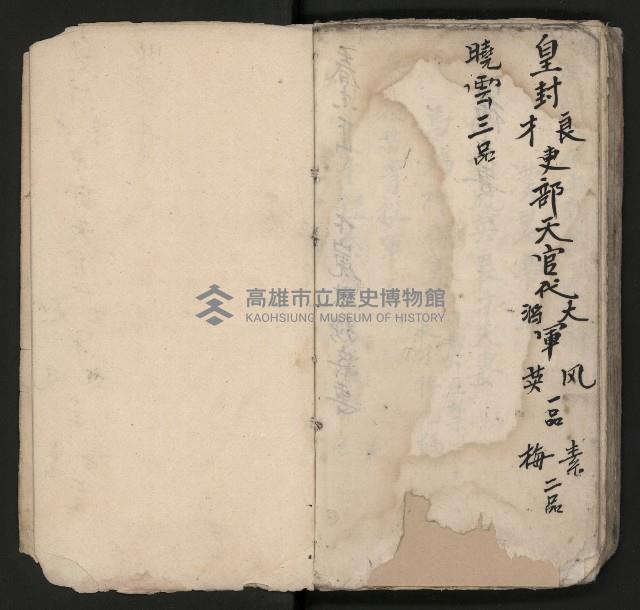 皇封良才吏部天官代大将軍风英一品素梅二品
曉雲三品
高雄市立歷史博物館
KAOHSIUNG MUSEUM OF HISTORY